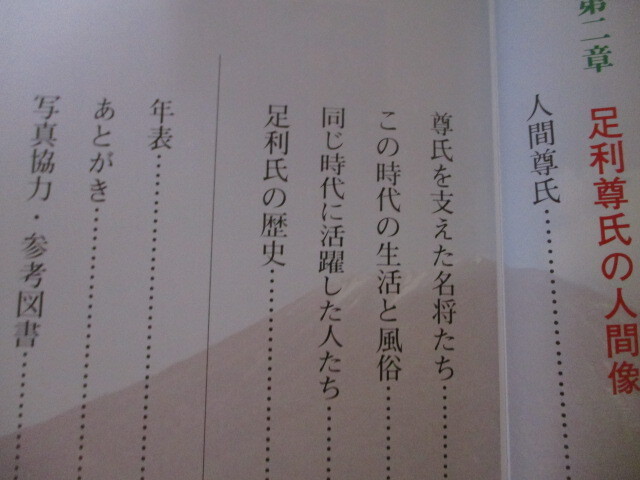 第二章
足利尊氏の人間像
人間尊氏
尊氏を支えた名将たち
この時代の生活と風俗
同じ時代に活躍した人たち
足利氏の歴史
年表
あとがき
写真協力・参考図書